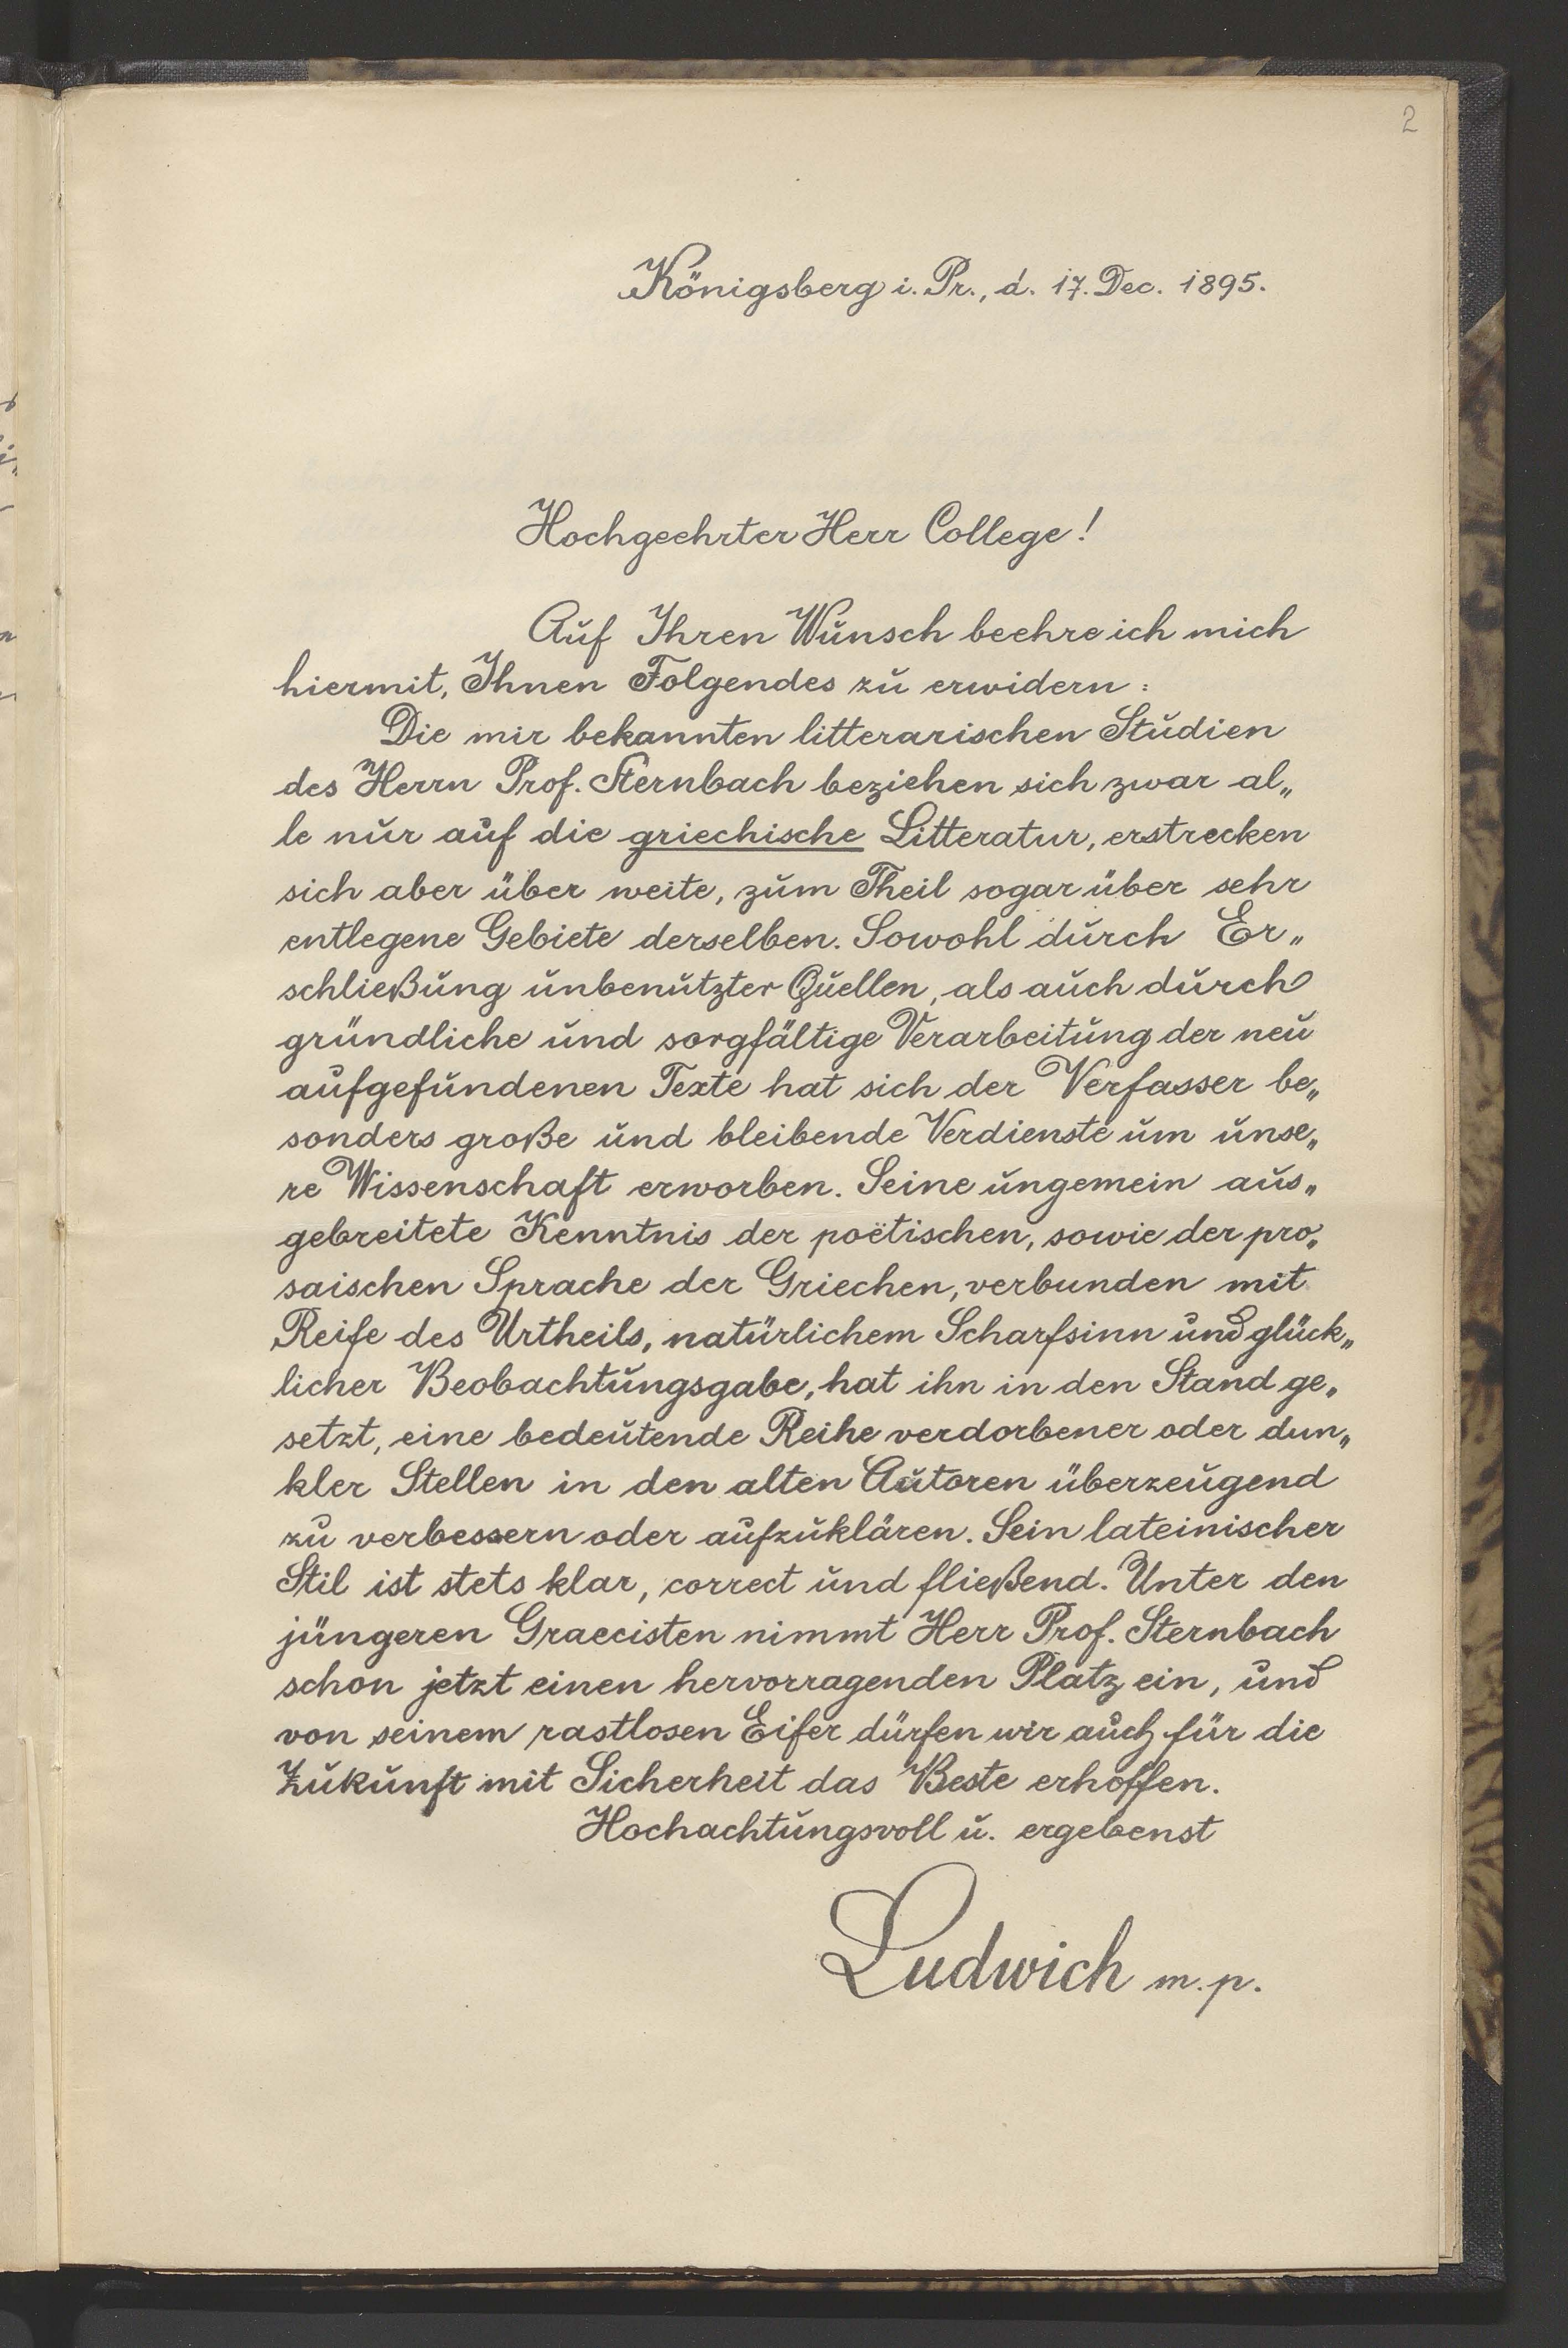 2
Königsberg i. Pr., d. 17. Dec. 1895.
Hochgeehrter Herr College!
Auf Ihren Wunsch beehre ich mich
hiermit, Ihnen Folgendes zu erwidern:
Die mir bekannten litterarischen Studien
des Herrn Prof. Sternbach beziehen sich zwar al„
le nur auf die griechische Litteratur, erstrecken
sich aber über weite, zum Theil sogar über sehr
entlegene Gebiete derselben. Sowohl durch Er„
schließung unbenutzter Quellen, als auch durch
gründliche und sorgfältige Verarbeitung der neu
aufgefundenen Texte hat sich der Verfasser be„
sonders große und bleibende Verdienste um unse„
re Wissenschaft erworben. Seine ungemein aus„
gebreitete Kenntnis der poëtischen, sowie der pro„
saischen Sprache der Griechen, verbunden mit
Reife des Urtheils, natürlichem Scharfsinn und glück„
licher Beobachtungsgabe, hat ihn in den Stand ge„
setzt, eine bedeutende Reihe verdorbener oder dun„
kler Stellen in den alten Autoren überzeugend
zu verbessern oder aufzuklären. Sein lateinischer
Stil ist stets klar, correct und fließend. Unter den
jüngeren Graecisten nimmt Herr Prof. Sternbach
schon jetzt einen hervorragenden Platz ein, und
von seinem rastlosen Eifer dürfen wir auch für die
Zukunft mit Sicherheit das Beste erhoffen.
Hochachtungsvoll u. ergebenst
Ludwich m. p.